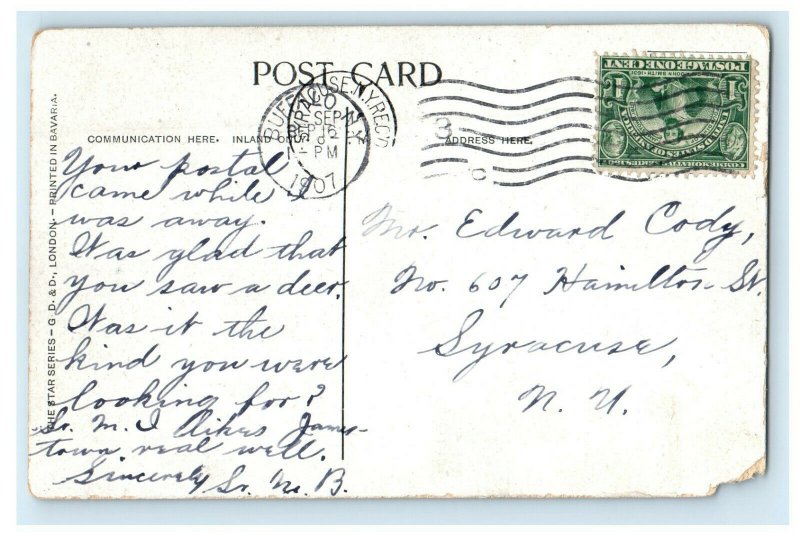 POST CARD
COMMUNICATION HERE. INLAND ONLY
ADDRESS HERE.
BUFFALO N.Y.
SYRACUSE, N.Y. REC'D
SEP 16
PM
1907
3
POSTAGE ONE CENT
FOUNDING OF JAMESTOWN 1607
Your postal
came while
was away.
Was glad that
you saw a deer.
Was it the
kind you were
looking for?
Sr. M. I likes James-
town real well.
Sincerely
Sr. M. B.
Mr. Edward Cody,
No. 607 Hamilton St.
Syracuse,
N. Y.
THE STAR SERIES – G. D. & D., LONDON. – PRINTED IN BAVARIA.